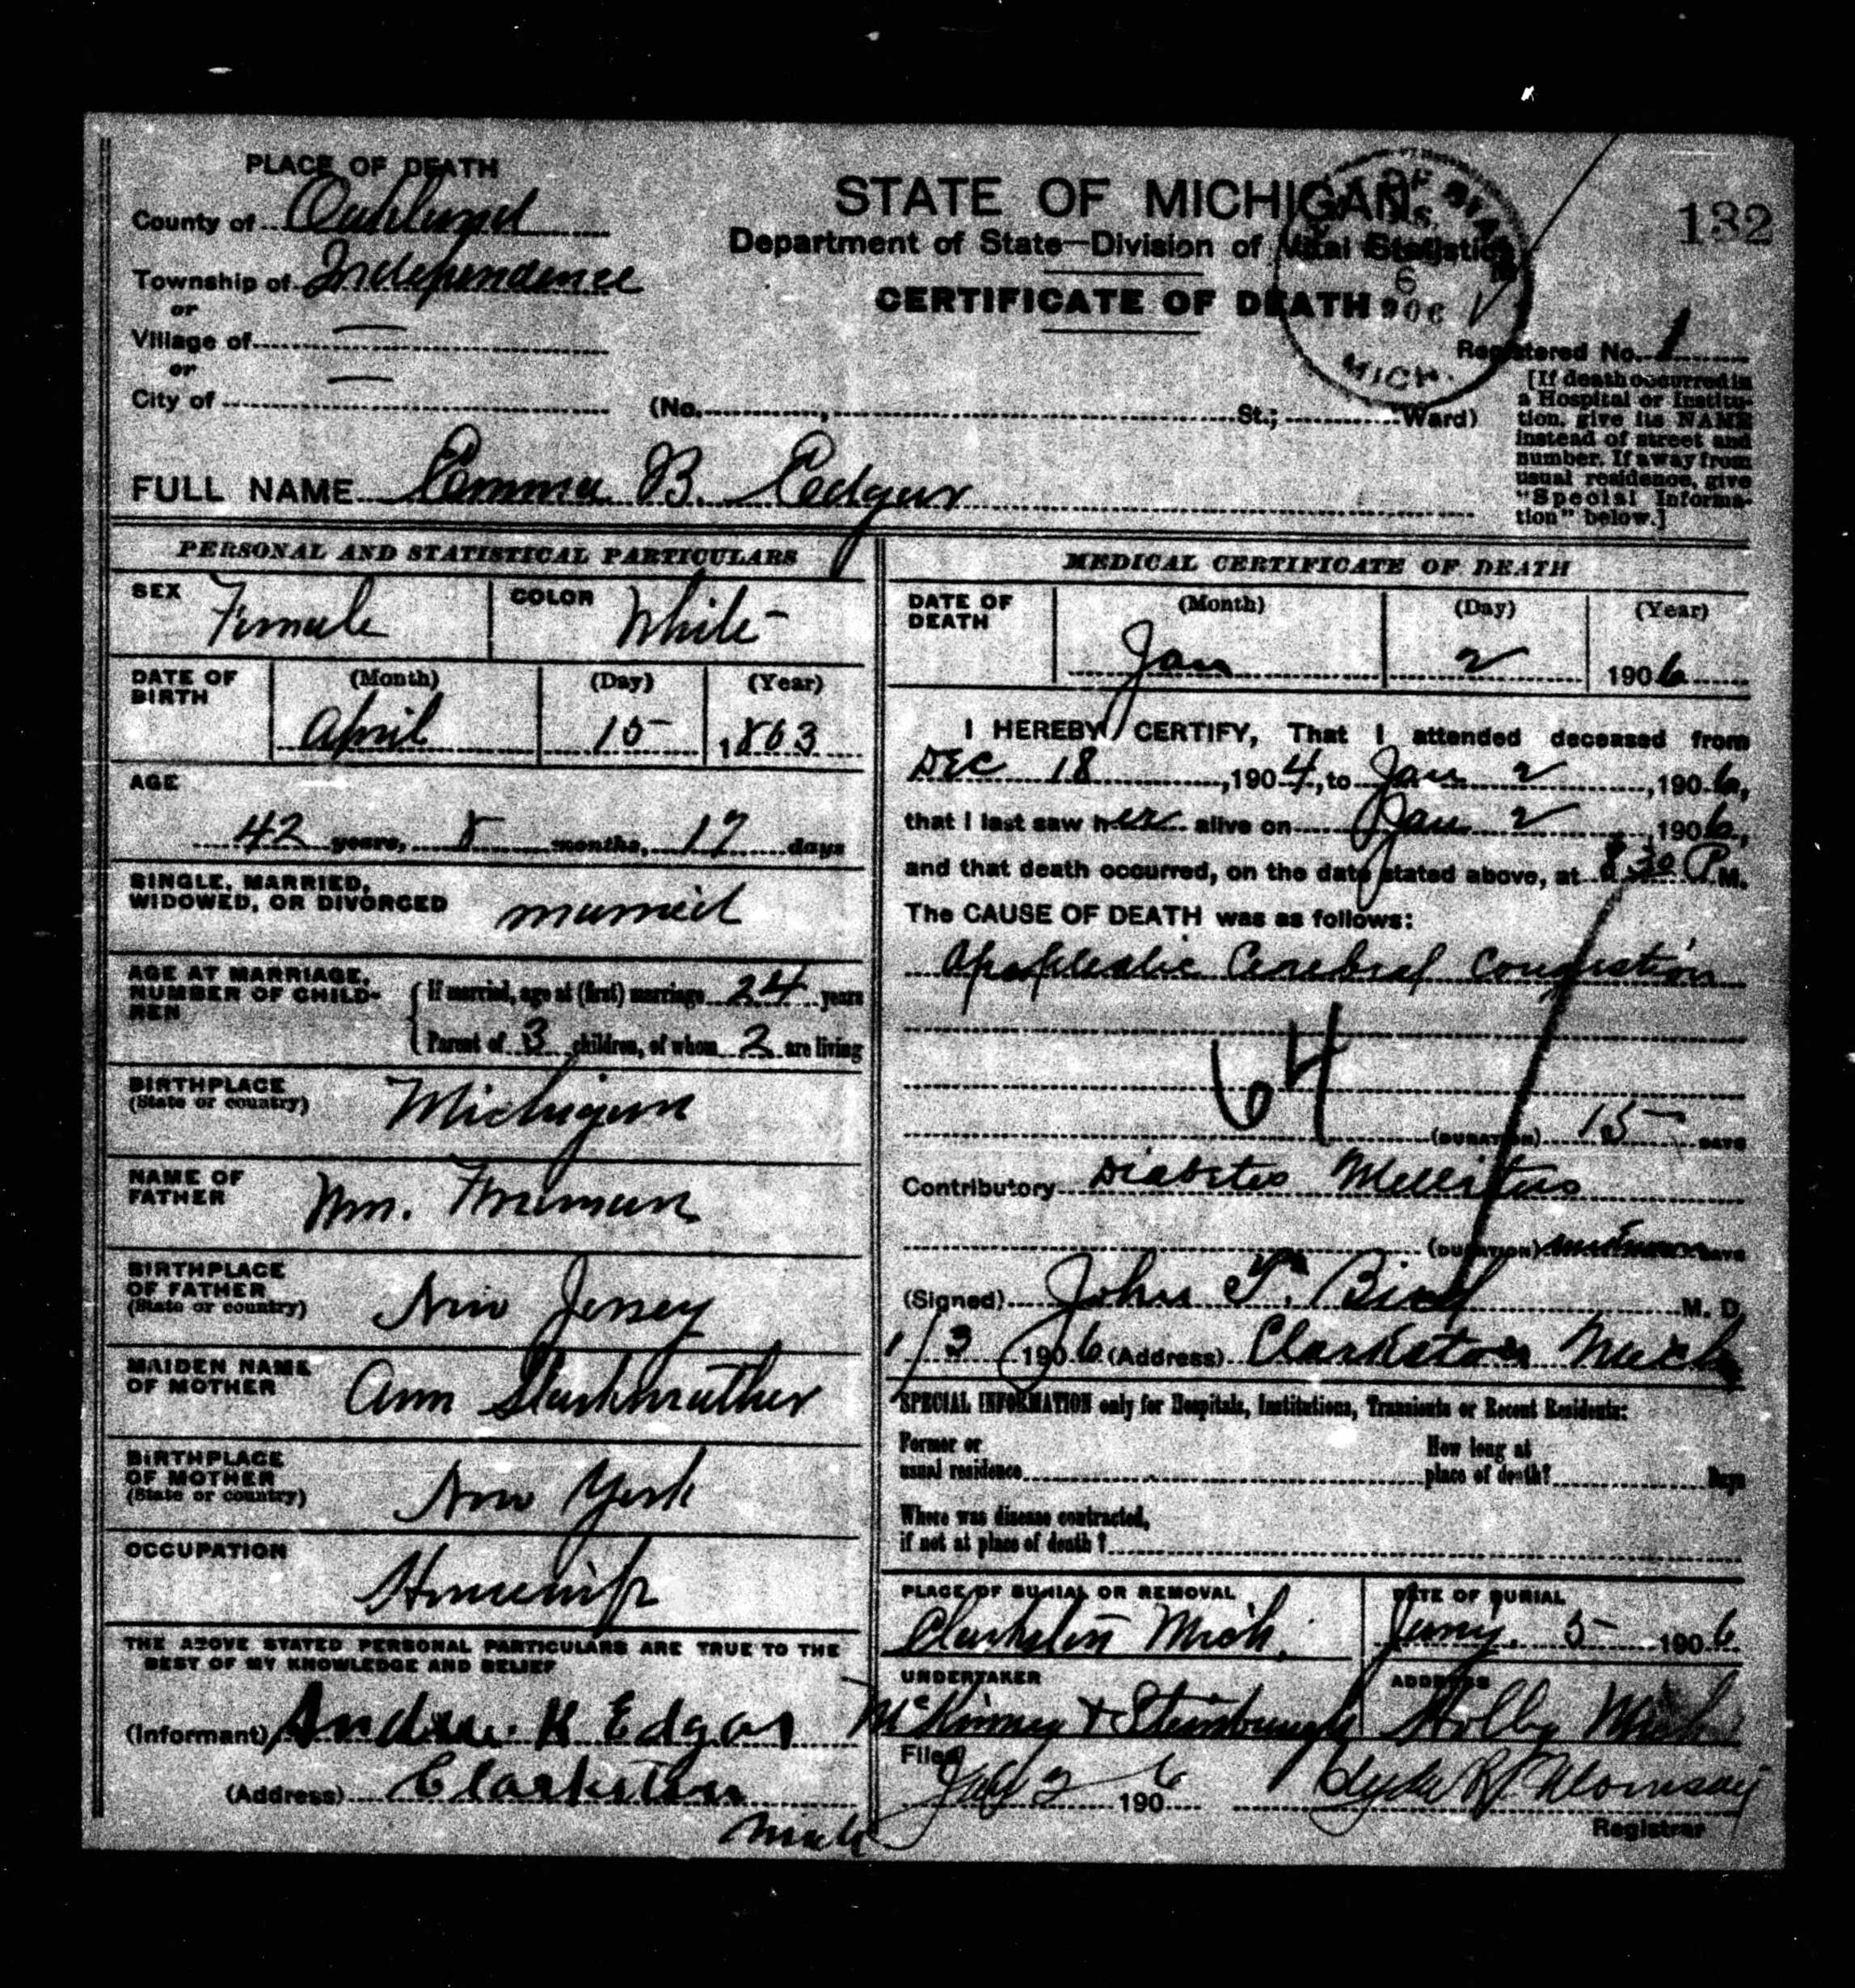 PLACE OF DEATH
County of Oakland
Township of Independence
or
Village of —
or
City of —
(No. , St.; Ward)
STATE OF MICHIGAN
Department of State—Division of Vital Statistics
CERTIFICATE OF DEATH
6
906
MICH.
132
Registered No. 1
[If death occurred in
a Hospital or Institu-
tion, give its NAME
instead of street and
number. If away from
usual residence, give
"Special Informa-
tion" below.]
FULL NAME Emma B. Edgar
PERSONAL AND STATISTICAL PARTICULARS
SEX Female COLOR White
DATE OF BIRTH (Month) (Day) (Year)
April 15 1863
AGE
42 years, 8 months, 17 days
SINGLE, MARRIED,
WIDOWED, OR DIVORCED married
AGE AT MARRIAGE,
NUMBER OF CHILD-
REN
If married, age at (first) marriage 24 years
Parent of 3 children, of whom 2 are living
BIRTHPLACE
(State or country) Michigan
NAME OF
FATHER Wm.
BIRTHPLACE
OF FATHER
(State or country) New Jersey
MAIDEN NAME
OF MOTHER Ann
BIRTHPLACE
OF MOTHER
(State or country) New York
OCCUPATION
Housewife
THE ABOVE STATED PERSONAL PARTICULARS ARE TRUE TO THE
BEST OF MY KNOWLEDGE AND BELIEF
(Informant) Andrew K Edgar
(Address) Clarkston
Mich
MEDICAL CERTIFICATE OF DEATH
DATE OF DEATH (Month) (Day) (Year)
Jan 2 1906
I HEREBY CERTIFY, That I attended deceased from
Dec 18, 1904, to Jan 2, 1906,
that I last saw her alive on Jan 2, 1906,
and that death occurred, on the date stated above, at 8 30 P.M.
The CAUSE OF DEATH was as follows:
Cerebral Congestion
64
(DURATION) 15 DAYS
Contributory Diabetes Mellitus
(DURATION) DAYS
(Signed) John T. M. D.
1/3 1906 (Address) Clarkston Mich
SPECIAL INFORMATION only for Hospitals, Institutions, Transients or Recent Residents:
Former or
usual residence
How long at
place of death? Days
Where was disease contracted,
if not at place of death?
PLACE OF BURIAL OR REMOVAL
Clarkston Mich.
DATE OF BURIAL
5 1906
UNDERTAKER
McKinney &
ADDRESS
Holly Mich
Filed
190 6
Registrar